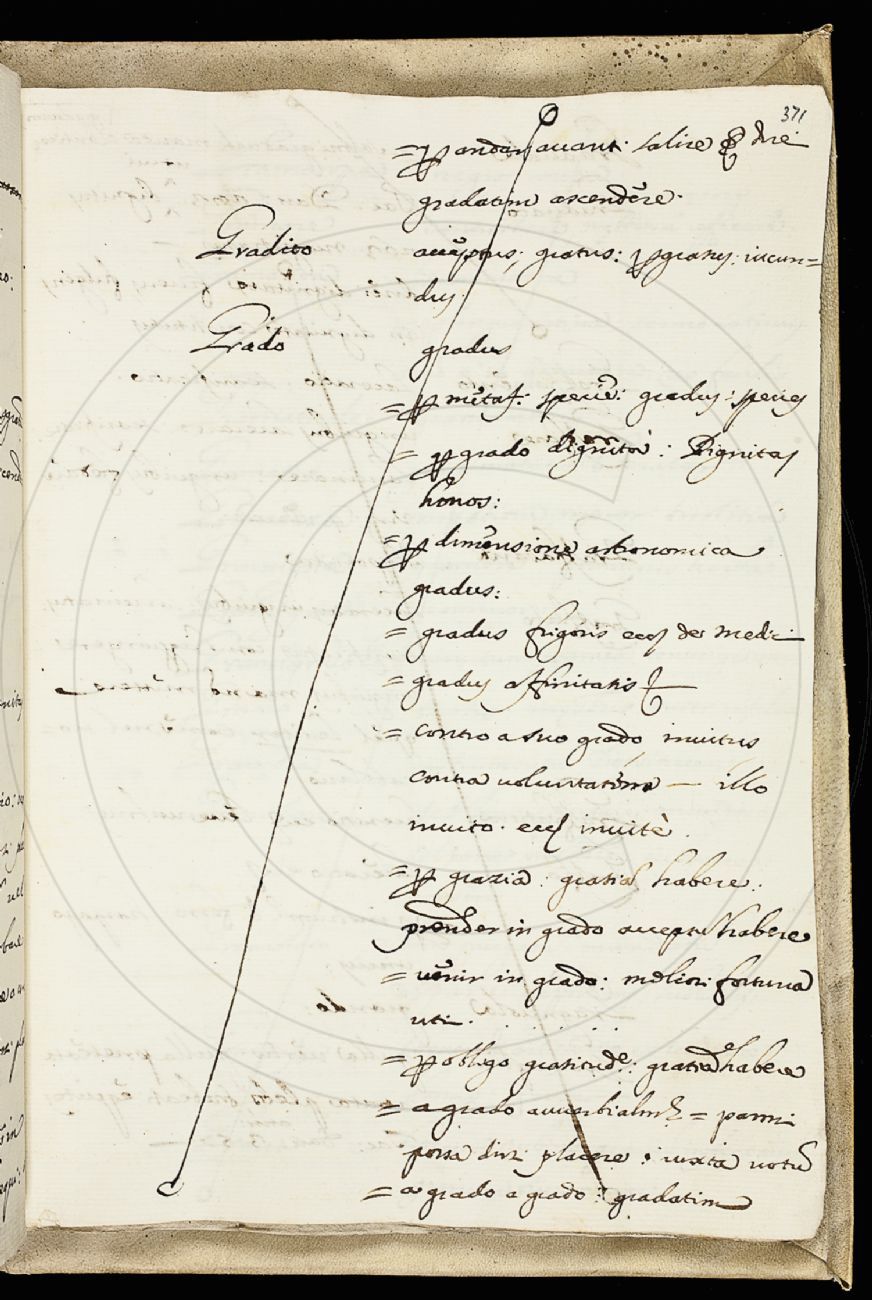 371
= p andar avant: salire
gradatim ascendere.
Gradito acceptus; gratus: p gratus: iucun=
dus:
Grado gradus
= p metaf: specie: gradus: species
= p grado dignità: Dignitas
honos:
= p dimensione astronomica
gradus:
= gradus frigoris ecc de medici
= gradus affinitatis
= contro a suo grado, invitus
contra voluntatem — illo
invito. ecc invitè.
= p grazia: gratia habere.
prender in grado acceptu habere
= venir in grado: meliori fortuna
uti.
= p obligo gratitude: gratia habere
= a grado avverbialm = parmi
possa dirsi placere: iuxta votu
= a grado a grado: gradatim